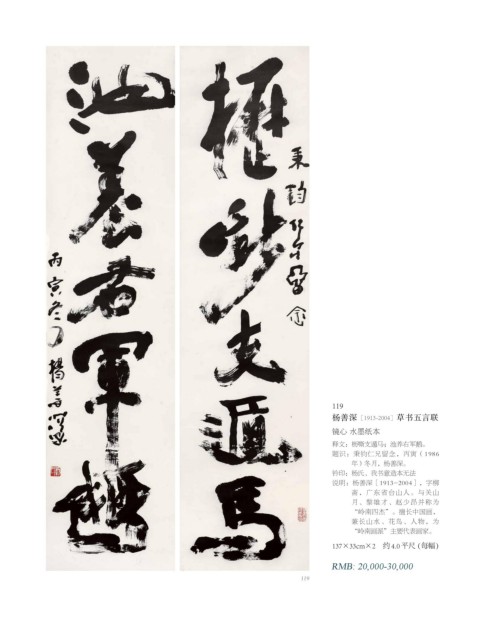 櫪嘶支遁馬
秉鈞仁兄留念
池養右軍鵝
丙寅冬月 楊善深
119
杨善深 [1913-2004] 草书五言联
镜心 水墨纸本
释文：枥嘶支遁马；池养右军鹅。
题识：秉钧仁兄留念，丙寅（1986
年）冬月，杨善深。
钤印：杨氏、我书意造本无法
说明：杨善深［1913-2004］，字柳
斋，广东省台山人。与关山
月、黎雄才、赵少昂并称为
“岭南四杰”。擅长中国画，
兼长山水、花鸟、人物，为
“岭南画派”主要代表画家。
137×33cm×2 约4.0平尺（每幅）
RMB: 20,000-30,000
119